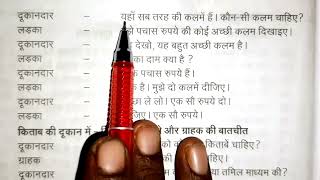 दूकानदार – यहाँ सब तरह की कलमें हैं। कौन-सी कलम चाहिए?
लड़का पचास रुपये की कोई अच्छी कलम दिखाइए।
दूकानदार देखो, यह बहुत अच्छी कलम है।
लड़का का दाम क्या है?
दूकानदार एक सौ रुपये।
लड़का है। मुझे दो कलमें दीजिए।
दूकानदार ले लो। एक सौ रुपये दो।
लड़का लीजिए एक सौ रुपये।
किताब की दूकान में – और ग्राहक की बातचीत
दूकानदार किताबें चाहिए?
ग्राहक चाहिए।
दूकानदार या तमिल माध्यम की?